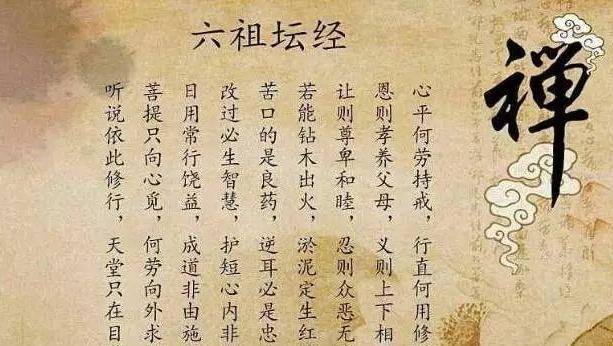 六祖坛经
禅
心平何劳持戒，行直何用修
恩则孝养父母，义则上下相
让则尊卑和睦，忍则众恶无
若能钻木出火，淤泥定生红
苦口的是良药，逆耳必是忠
改过必生智慧，护短心内非
日用常行饶益，成道非由施
菩提只向心觅，何劳向外求
听说依此修行，天堂只在目